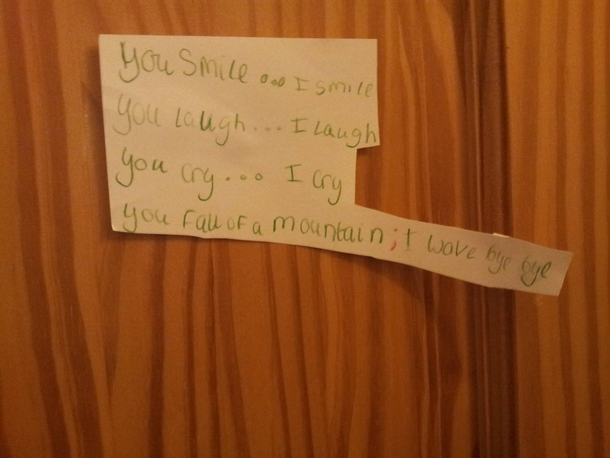 You smile ... I smile
you laugh... I laugh
you cry... I cry
you fall of a mountain; I wave bye bye